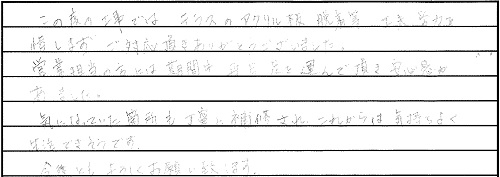 この度の工事では テラスのアクリル板
惜します ご対応頂きありがとうございました。
営業担当の方には期間中 足を運んで頂き安心感が
ありました。
気になっていた箇所も丁寧に補修され これからは気持ちよく
生活できそうです。
今後ともよろしくお願い致します。